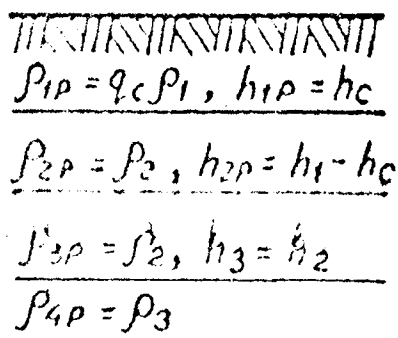 ρ₁ₚ = q_c ρ₁, h₁ₚ = h_c
ρ₂ₚ = ρ₂, h₂ₚ = h₁ - h_c
ρ₃ₚ = ρ₂, h₃ = h₂
ρ₄ₚ = ρ₃